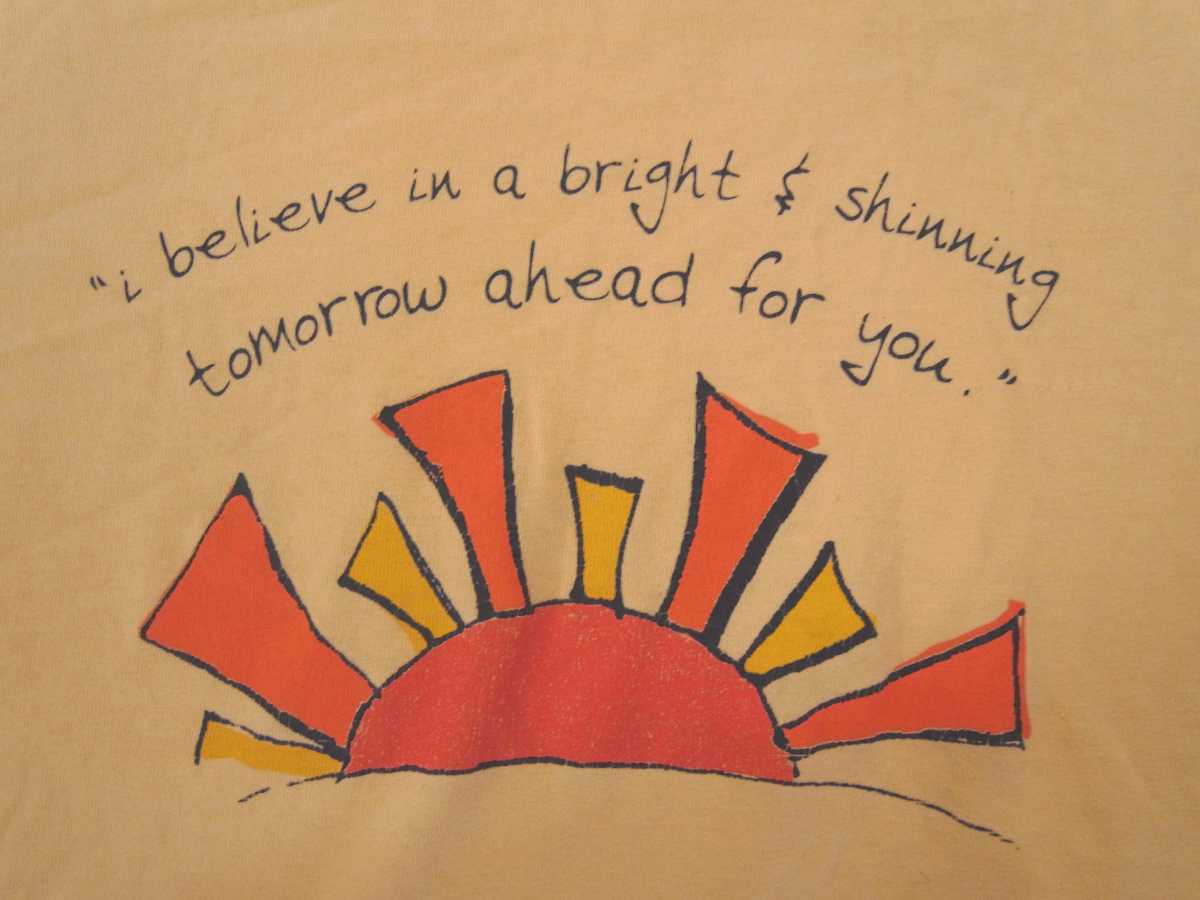 "i believe in a bright & shinning
tomorrow ahead for you."